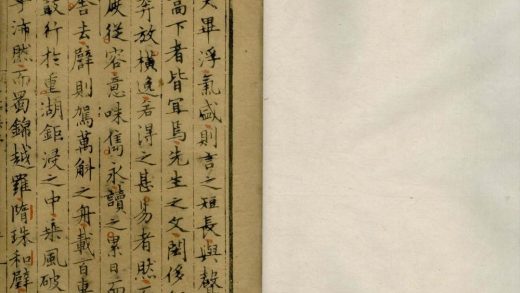 畢浮氣盛則言之短長與聲
高下者皆冝焉先生之文閎侈
奔放橫逸若得之甚易者然
厥從容意味雋永讀之累日而
舍去辟則駕萬斛之舟載百
行於重湖鉅浸之中乘風破
沛然而蜀錦越羅隋珠和璧